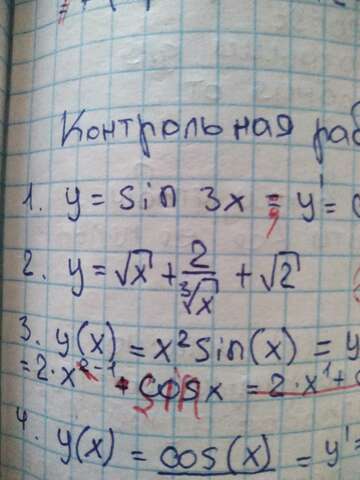 Контрольная раб
1. y = sin 3x = y' =
2. y = √x + 2/∛x + √2
3. y(x) = x² sin(x) = y
= 2·x²⁻¹ + cos x = 2·x¹ +
sin
4. y(x) = cos(x) = y' =